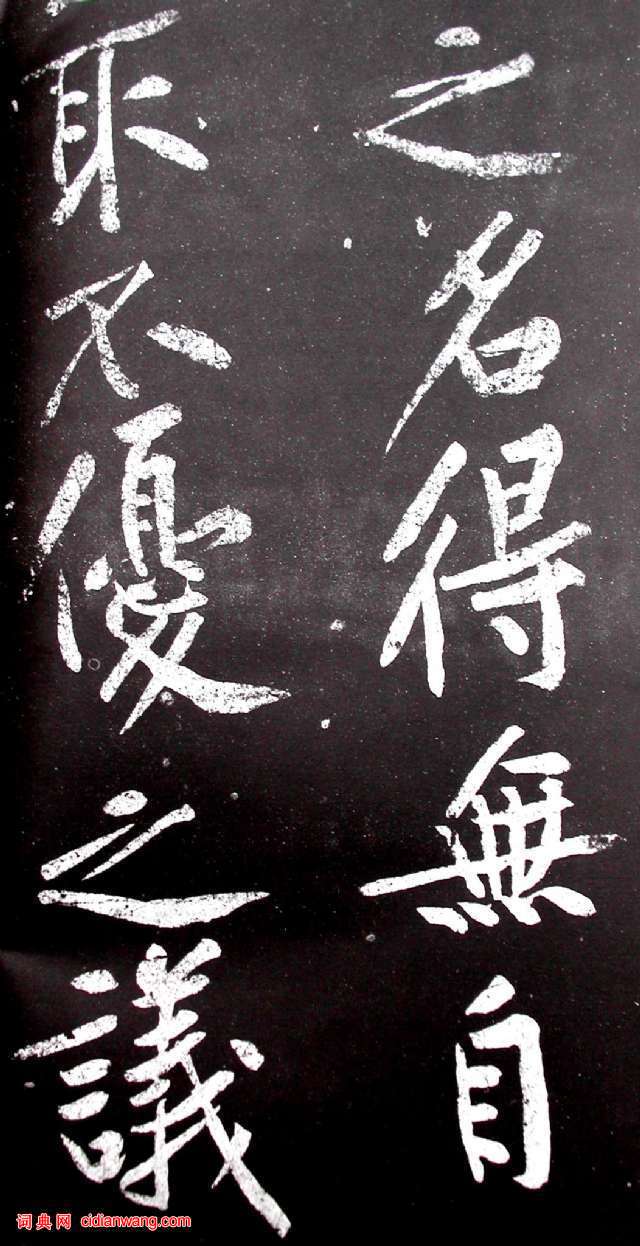 之名得無自
取不優之議
词典网 cidianwang.com